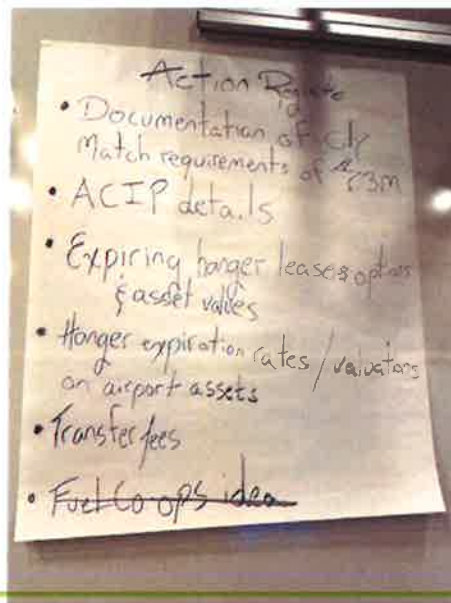 Action Register
• Documentation of City
Match requirements of
• ACIP details
• Expiring hanger leases options
& asset values
• Hanger expiration rates / valuations
on airport assets
• Transfer fees
• Fuel Co-ops idea